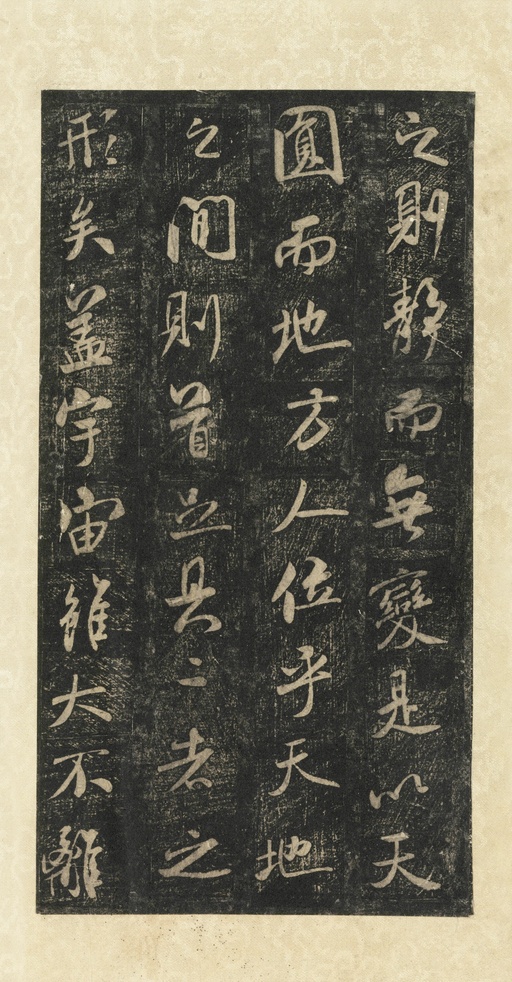 之則静而無變是以天
圓而地方人位乎天地
之間則首足具二者之
形矣盖宇宙雖大不離